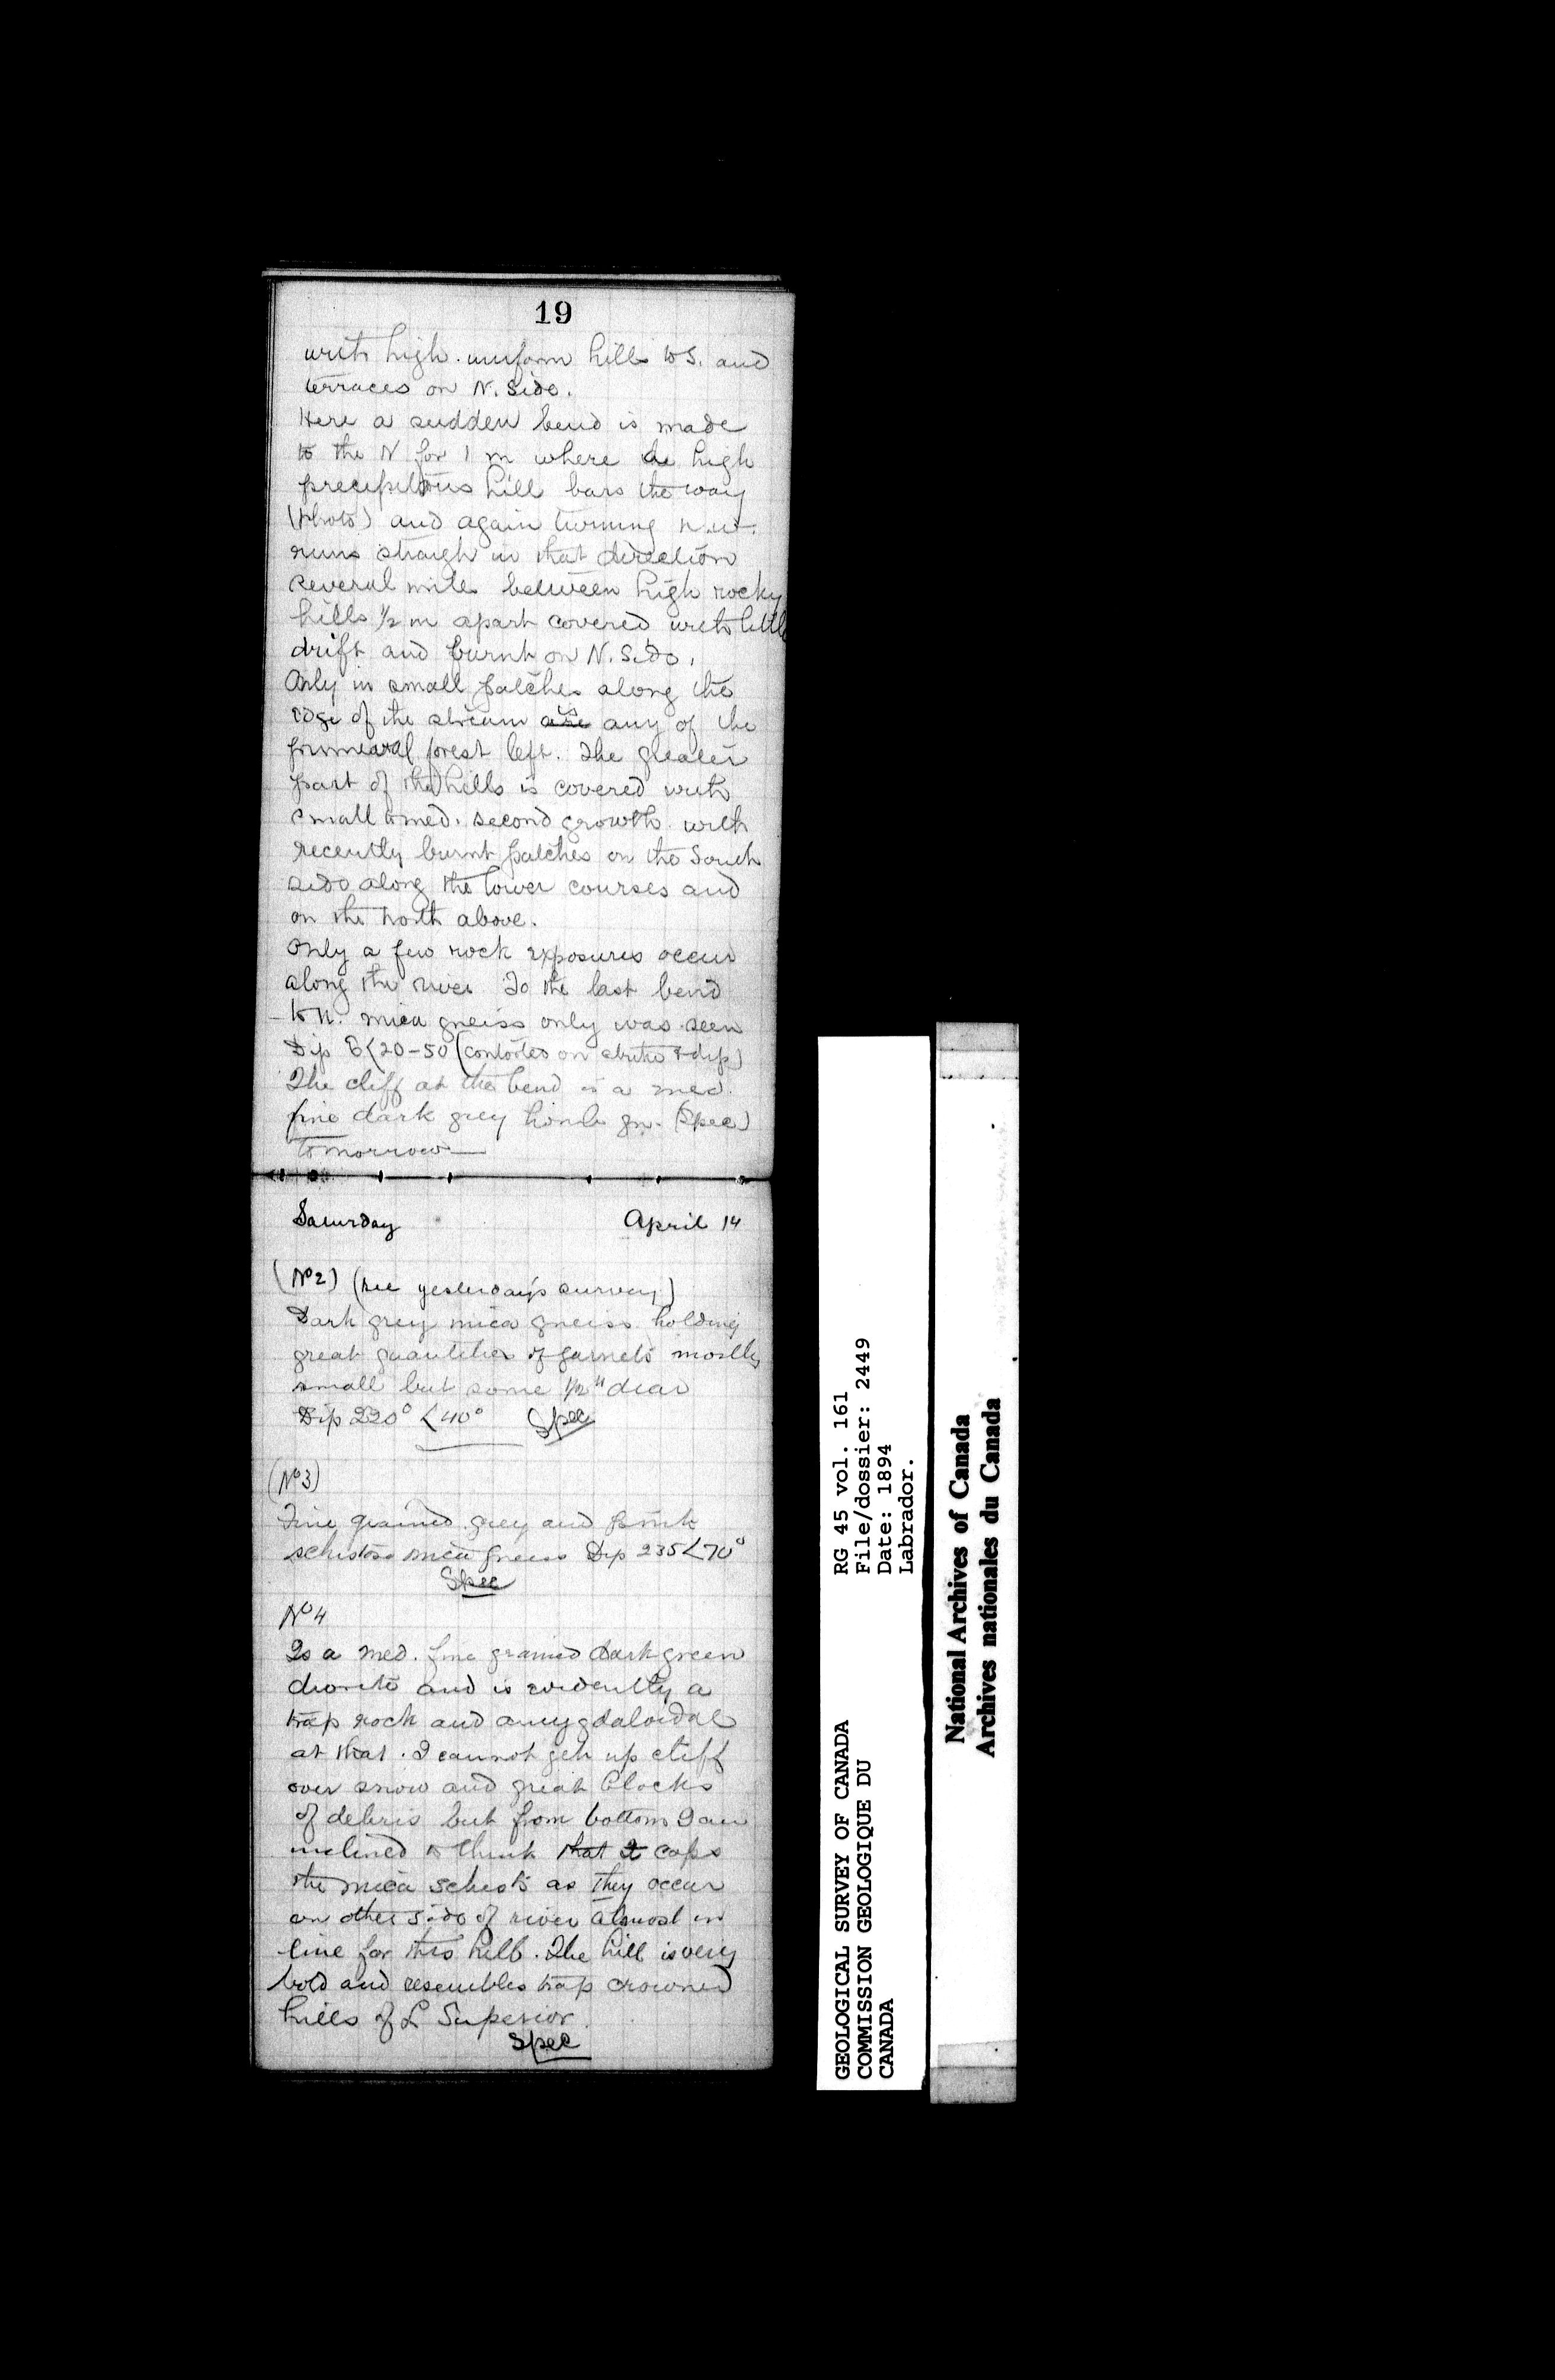 19
with high uniform hills to S. and
terraces on N. side.
Here a sudden bend is made
to the N for 1 m where a high
precipitous hill bars the way
(Photo) and again turning N.W.
runs straigh in that direction
several miles between high rocky
hills 1/2 m apart covered with little
drift and burnt on N. Side.
Only in small patches along the
edge of the stream are is any of the
primeaval forest left. The greater
part of the hills is covered with
small to med. second growth with
recently burnt patches on the South
side along the lower courses and
on the north above.
Only a few rock exposures occur
along the river To the last bend
to N. mica gneiss only was seen
Dip E<20-50 (contorted on strike & dip)
The cliff at the bend is a med.
fine dark grey hornb gn. (Spec)
tomorrow—
Saturday April 14
(No 2) (see yesterday's survey)
Dark grey mica gneiss holding
great quantities of garnets mostly
small but some 1/2" diar
Dip 220° <40° Spec
(No 3)
Fine grained grey and pink
schistose mica gneiss Dip 235<70°
Spec
No 4
Is a med. fine grained dark green
diorite and is evidently a
trap rock and amygdaloidal
at that. I cannot get up cliff
over snow and great blocks
of debris but from bottom I am
inclined to think that it caps
the mica schists as they occur
on other side of river almost in
line for this hill. The hill is very
bold and resembles trap crowned
hills of L Superior.
Spec
GEOLOGICAL SURVEY OF CANADA
COMMISSION GEOLOGIQUE DU
CANADA
RG 45 vol. 161
File/dossier: 2449
Date: 1894
Labrador.
National Archives of Canada
Archives nationales du Canada